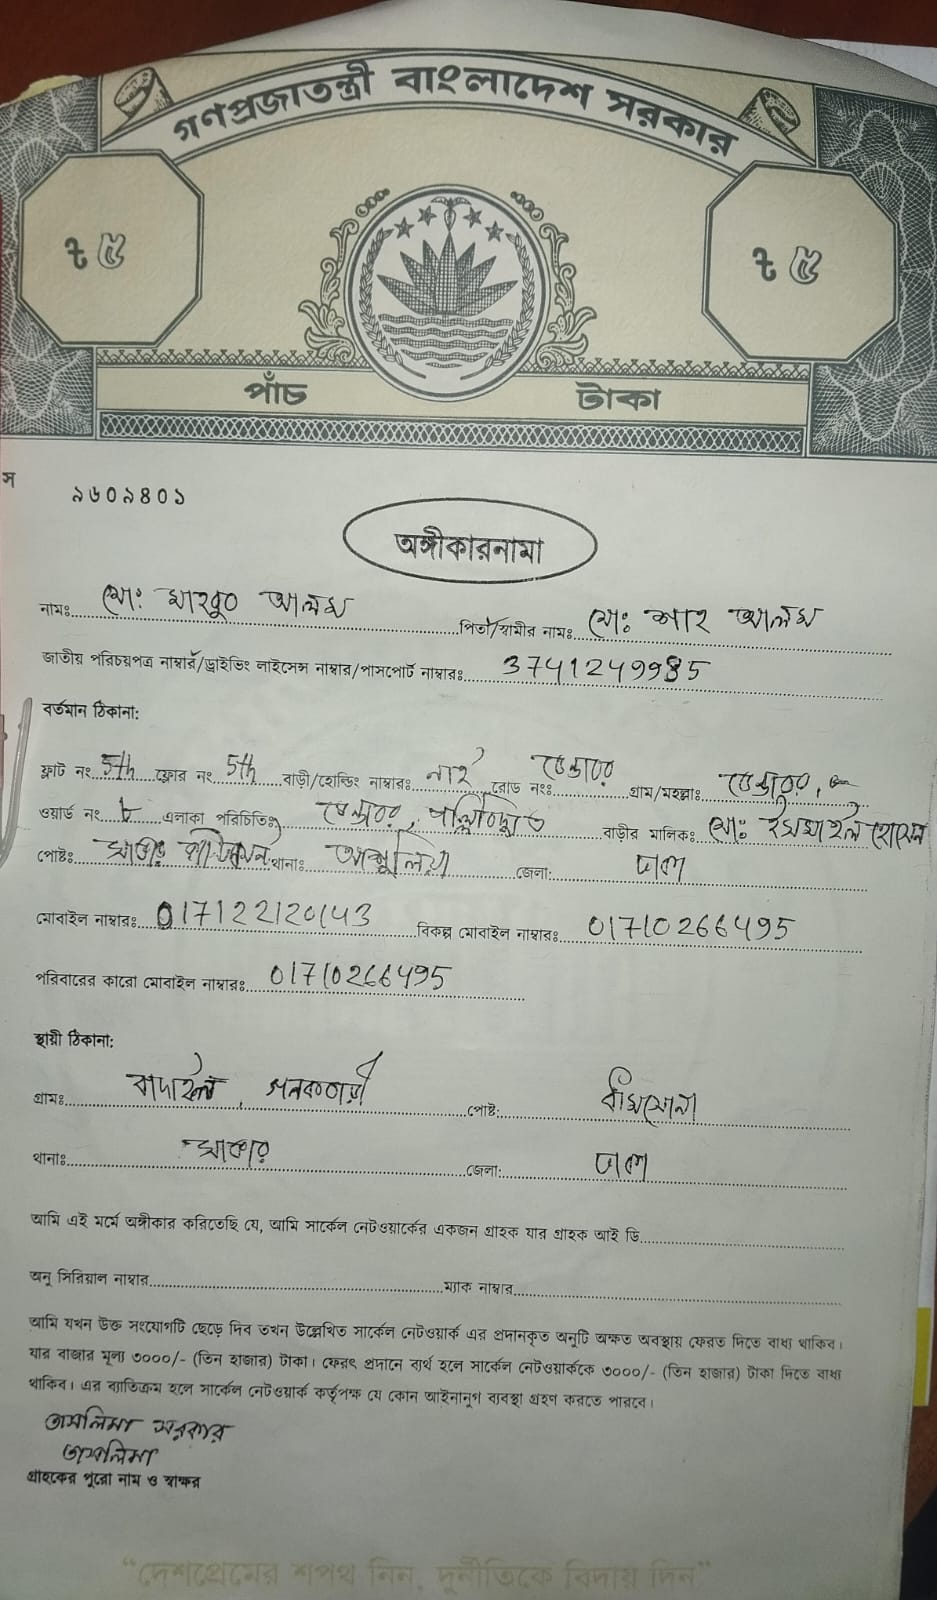 গণপ্রজাতন্ত্রী বাংলাদেশ সরকার
৳ ৫ ৳ ৫
পাঁচ টাকা
স
৯৬০৯৪০১
অঙ্গীকারনামা
নামঃ মোঃ মাহবুব আলম পিতা/স্বামীর নামঃ মোঃ শাহ আলম
জাতীয় পরিচয়পত্র নাম্বার/ড্রাইভিং লাইসেন্স নাম্বার/পাসপোর্ট নাম্বারঃ 3741249985
বর্তমান ঠিকানা:
ফ্লাট নং 5th ফ্লোর নং 5th বাড়ী/হোল্ডিং নাম্বারঃ নাই রোড নংঃ ডেন্ডাবর গ্রাম/মহল্লাঃ ডেন্ডাবর,
ওয়ার্ড নং ৮ এলাকা পরিচিতিঃ ডেন্ডাবর, পল্লীবিদ্যুত বাড়ীর মালিকঃ মোঃ ইসমাইল হোসেন
পোষ্টঃ থানাঃ আশুলিয়া জেলা: ঢাকা
মোবাইল নাম্বারঃ 01712212043 বিকল্প মোবাইল নাম্বারঃ 01710266495
পরিবারের কারো মোবাইল নাম্বারঃ 01710266495
স্থায়ী ঠিকানা:
গ্রামঃ বাদাইল, পোষ্ট:
থানাঃ সাভার জেলা: ঢাকা
আমি এই মর্মে অঙ্গীকার করিতেছি যে, আমি সার্কেল নেটওয়ার্কের একজন গ্রাহক যার গ্রাহক আই ডি
অনু সিরিয়াল নাম্বার ম্যাক নাম্বার
আমি যখন উক্ত সংযোগটি ছেড়ে দিব তখন উল্লেখিত সার্কেল নেটওয়ার্ক এর প্রদানকৃত অনুটি অক্ষত অবস্থায় ফেরত দিতে বাধ্য থাকিব।
যার বাজার মূল্য ৩০০০/- (তিন হাজার) টাকা। ফেরৎ প্রদানে ব্যর্থ হলে সার্কেল নেটওয়ার্ককে ৩০০০/- (তিন হাজার) টাকা দিতে বাধ্য
থাকিব। এর ব্যতিক্রম হলে সার্কেল নেটওয়ার্ক কর্তৃপক্ষ যে কোন আইনানুগ ব্যবস্থা গ্রহণ করতে পারবে।
তাসলিমা সরকার
তাসলিমা
গ্রাহকের পুরো নাম ও স্বাক্ষর
“দেশপ্রেমের শপথ নিন, দুর্নীতিকে বিদায় দিন”